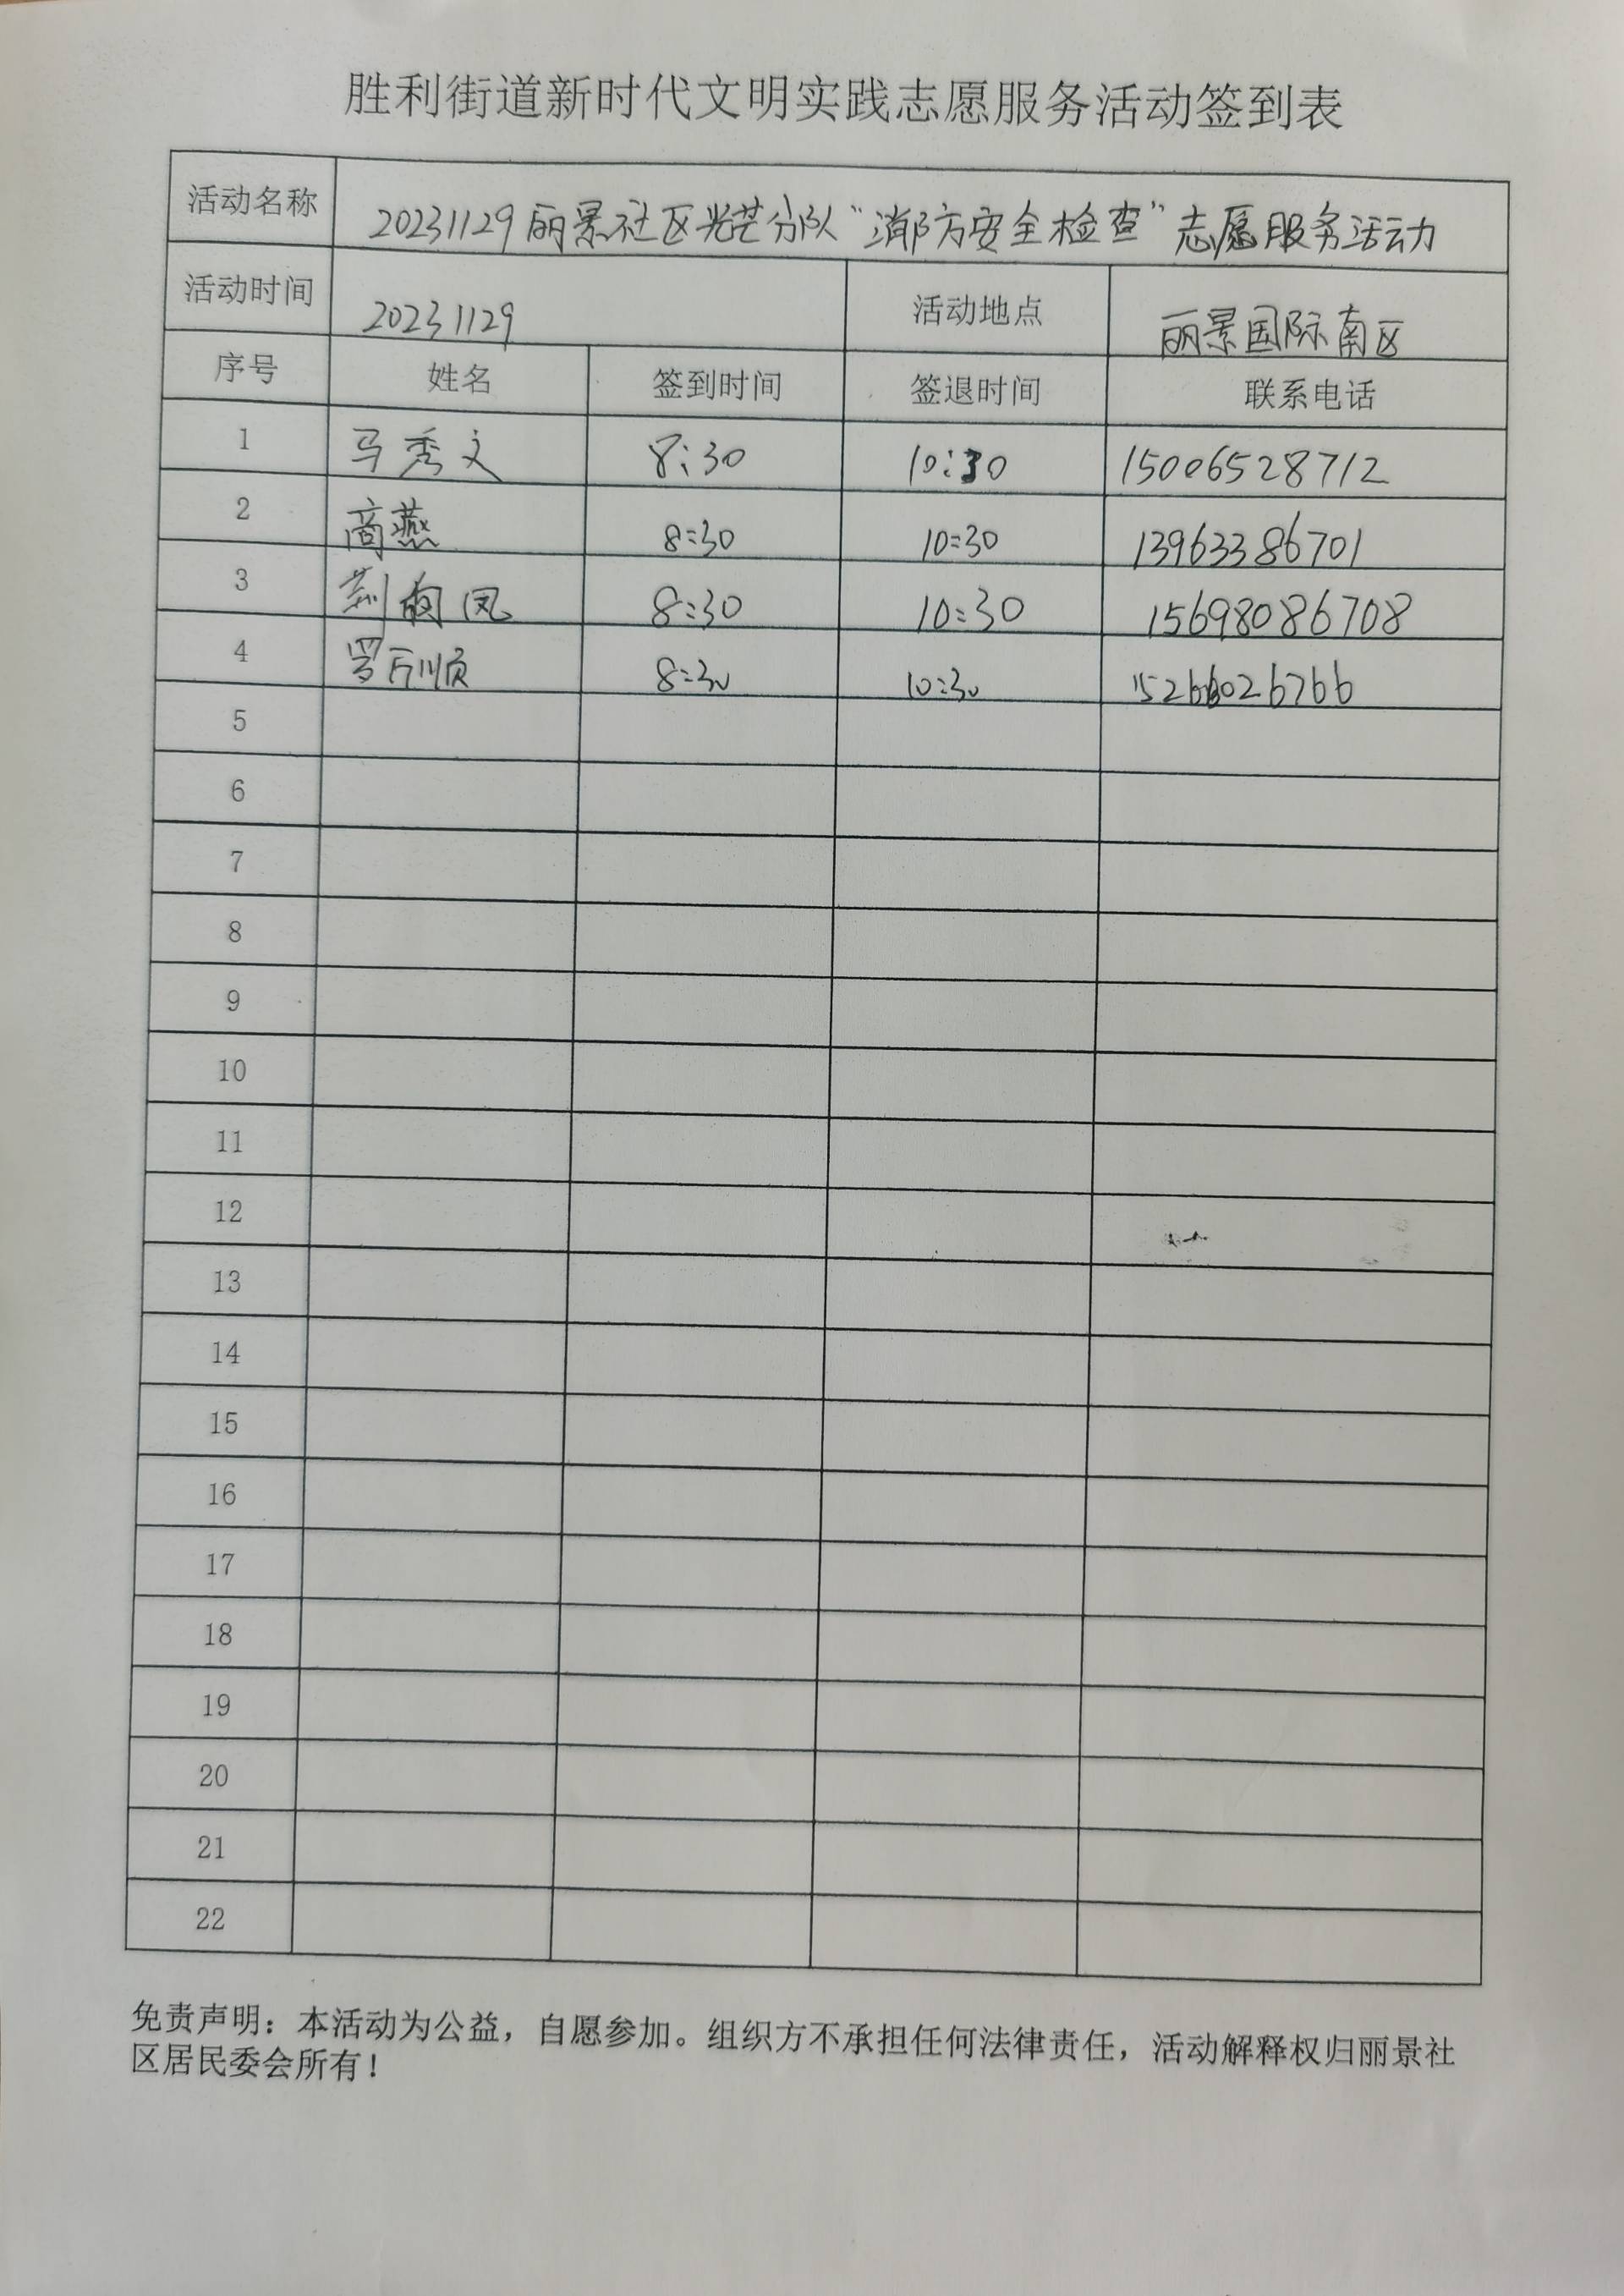 胜利街道新时代文明实践志愿服务活动签到表
活动名称 20231129丽景社区光芒分队“消防安全检查”志愿服务活动
活动时间 20231129 活动地点 丽景国际南区
序号 姓名 签到时间 签退时间 联系电话
1 马秀文 8:30 10:30 15006528712
2 商燕 8:30 10:30 13963386701
3 荆 凤 8:30 10:30 15698086708
4 罗万顺 8:30 10:30 15266026766
5
6
7
8
9
10
11
12
13
14
15
16
17
18
19
20
21
22
免责声明：本活动为公益，自愿参加。组织方不承担任何法律责任，活动解释权归丽景社
区居民委会所有！